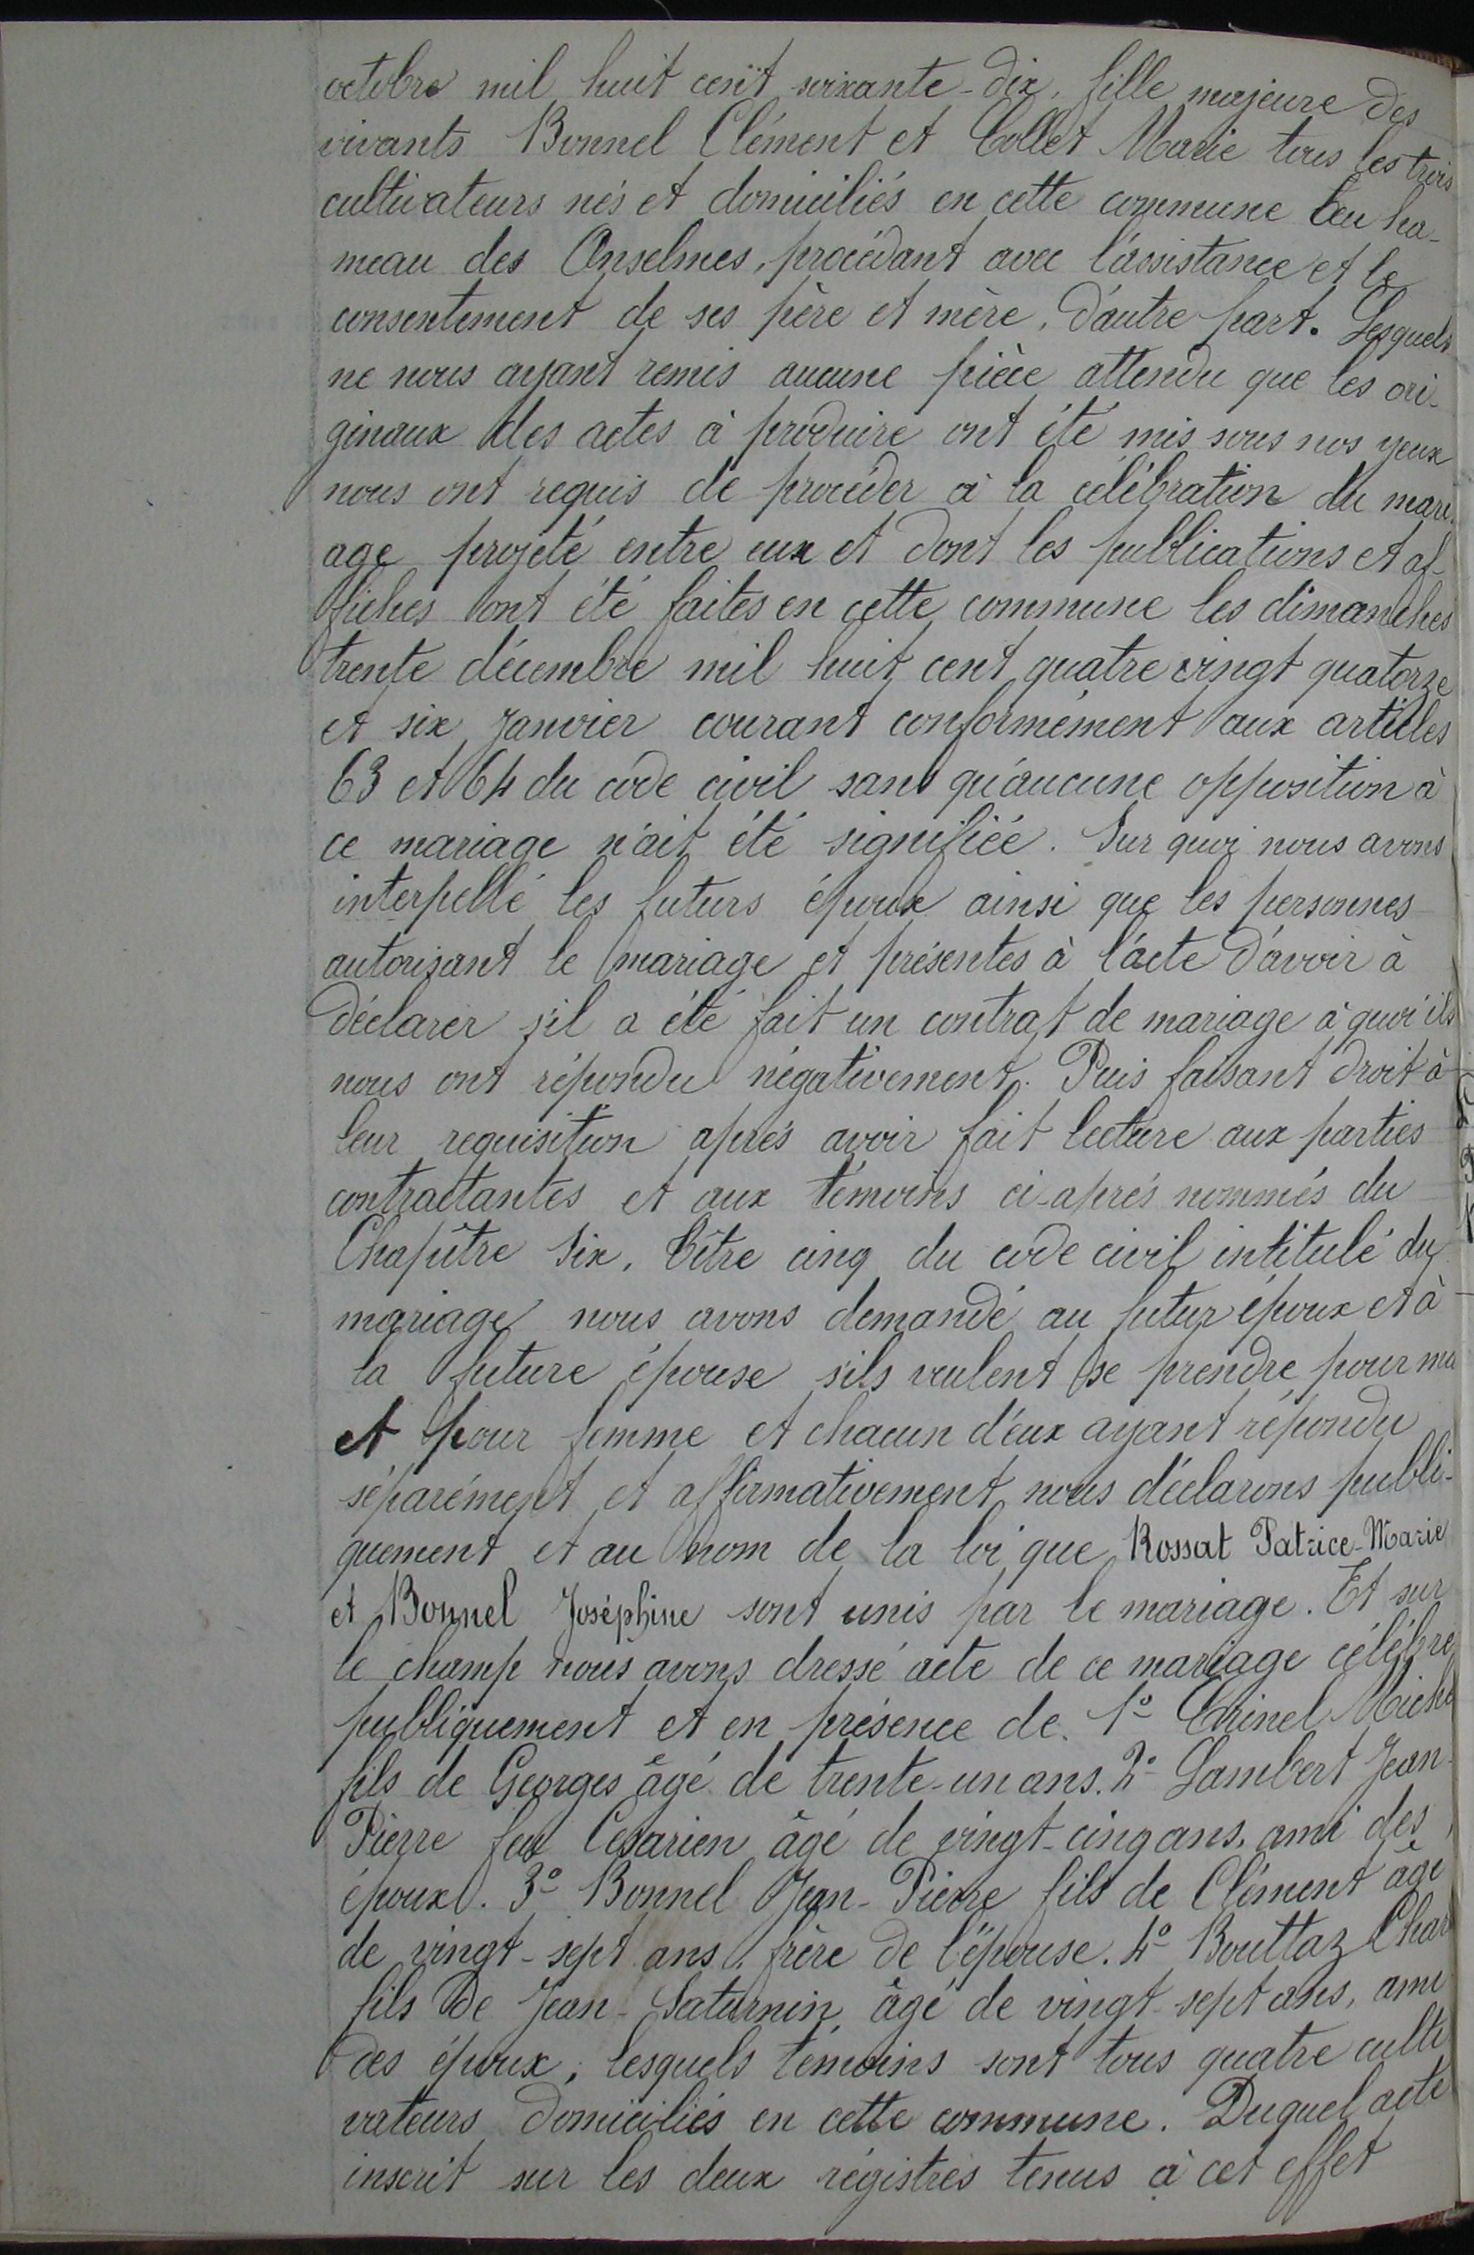 octobre mil huit cent soixante-dix, fille majeure des
vivants Bonnel Clément et Collet Marie tous les trois
cultivateurs nés et domiciliés en cette commune au ha-
meau des Anselmes, procédant avec l'assistance et le
consentement de ses père et mère, d'autre part. Lesquels
ne nous ayant remis aucune pièce attendu que les ori-
ginaux des actes à produire ont été mis sous nos yeux
nous ont requis de procéder à la célébration du mari-
age projeté entre eux et dont les publications et af-
fiches ont été faites en cette commune les dimanches
trente décembre mil huit cent quatre vingt quatorze
et six janvier courant conformément aux articles
63 et 64 du code civil sans qu'aucune opposition à
ce mariage n'ait été signifiée. Sur quoi nous avons
interpellé les futurs époux ainsi que les personnes
autorisant le mariage et présentes à l'acte d'avoir à
déclarer s'il a été fait un contrat de mariage à quoi ils
nous ont répondu négativement. Puis faisant droit à
leur requisition après avoir fait lecture aux parties
contractantes et aux témoins ci-après nommés du
Chapître Six, titre cinq du code civil intitulé du
mariage nous avons demandé au futur époux et à
la future épouse s'ils veulent se prendre pour ma
et pour femme et chacun d'eux ayant répondu
séparément et affirmativement nous déclarons publi-
quement et au nom de la loi que Rossat Patrice-Marie
et Bonnel Joséphine sont unis par le mariage. Et sur
le champ nous avons dressé acte de ce mariage célébré
publiquement et en présence de. 1º Miche
fils de Georges âgé de trente-un ans. 2º Lambert Jean-
Pierre feu Césarien âgé de vingt-cinq ans, ami des
époux. 3º Bonnel Jean-Pierre fils de Clément âgé
de vingt-sept ans, frère de l'épouse. 4º Bouttaz Char
fils de Jean-Saturnin, âgé de vingt-sept ans, ami
des époux; lesquels témoins sont tous quatre culti
vateurs domiciliés en cette commune. Duquel acte
inscrit sur les deux régistres tenus à cet effet